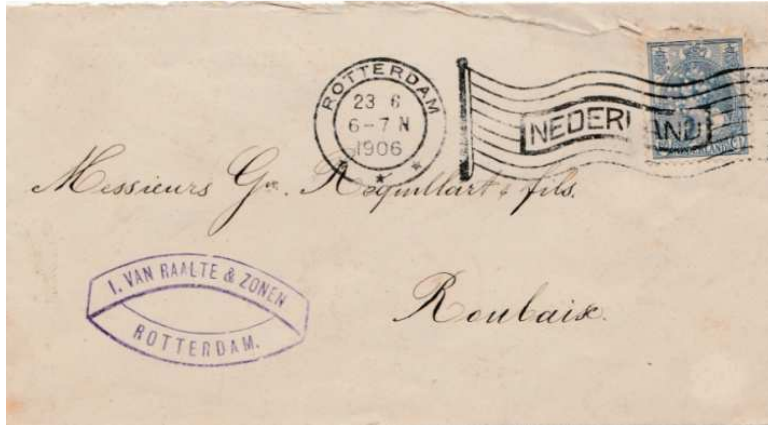 ROTTERDAM
23 6
6-7 N
1906
NEDERLAND
Messieurs Gve. Requillart & fils.
Roubaix.
I. VAN RAALTE & ZONEN
ROTTERDAM.